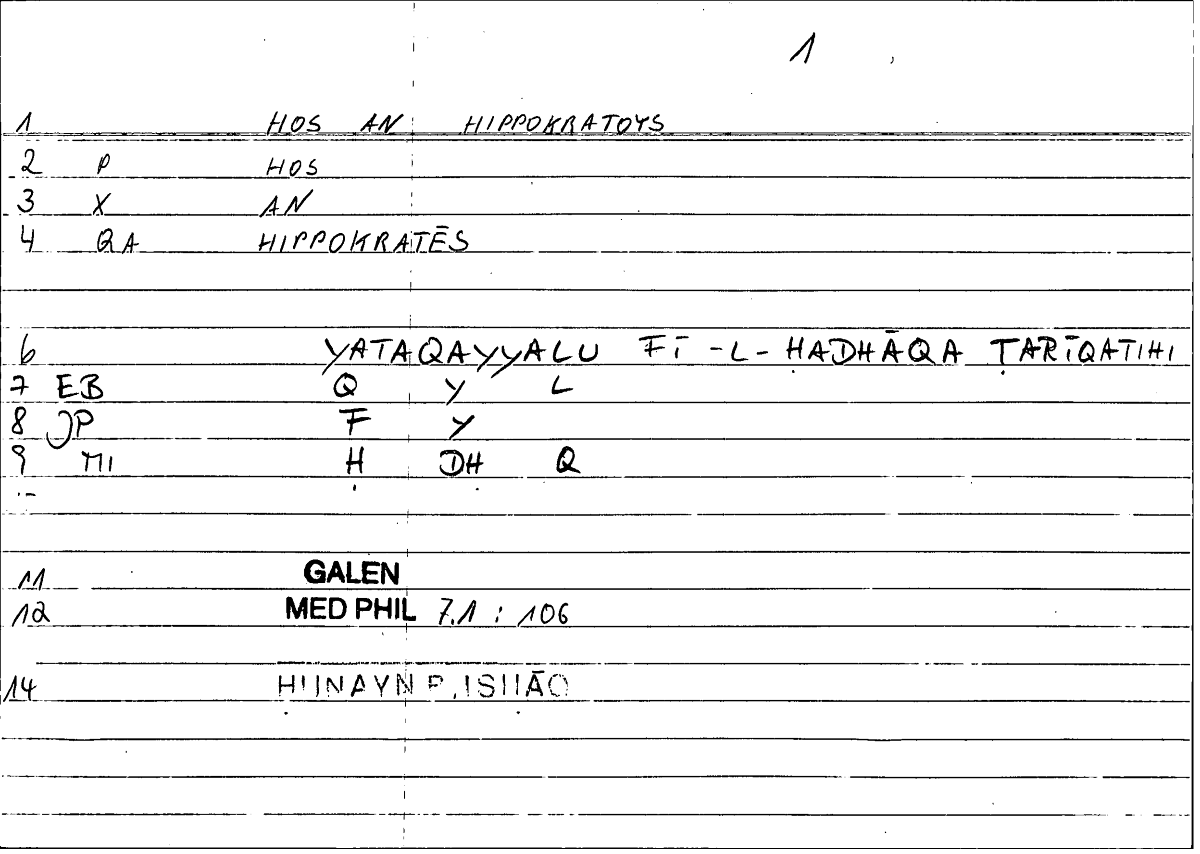 1
1 HOS AN HIPPOKRATOYS
2 P HOS
3 X AN
4 QA HIPPOKRATĒS
6 YATAQAYYALU FĪ -L- ḤADHĀQA ṬARĪQATIHI
7 EB Q Y L
8 JP F Y
9 MI Ḥ ḎH Q
11 GALEN
12 MED PHIL 7.1 : 106
14 ḤUNAYN B. ISḤĀQ